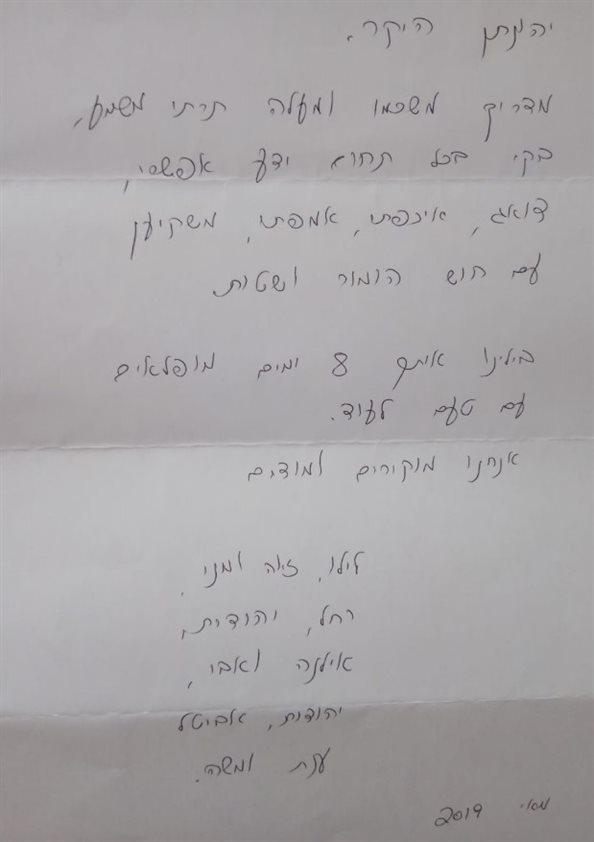 יהונתן היקר.
מדריך משכמו ומעלה תרתי משמע,
בקי בכל תחום ידע אפשרי,
דואג, איכפתי, אמפתי, משקיען
עם חוש הומור ושטות.
בילינו איתך 8 ימים מופלאים
עם טעם לעוד.
אנחנו מוקירים ומודים
לילו, זיוה ומני,
רחל, יהודית,
אילנה ואבי,
יהודית, אביטל
ענת ומשה.
מאי 2019